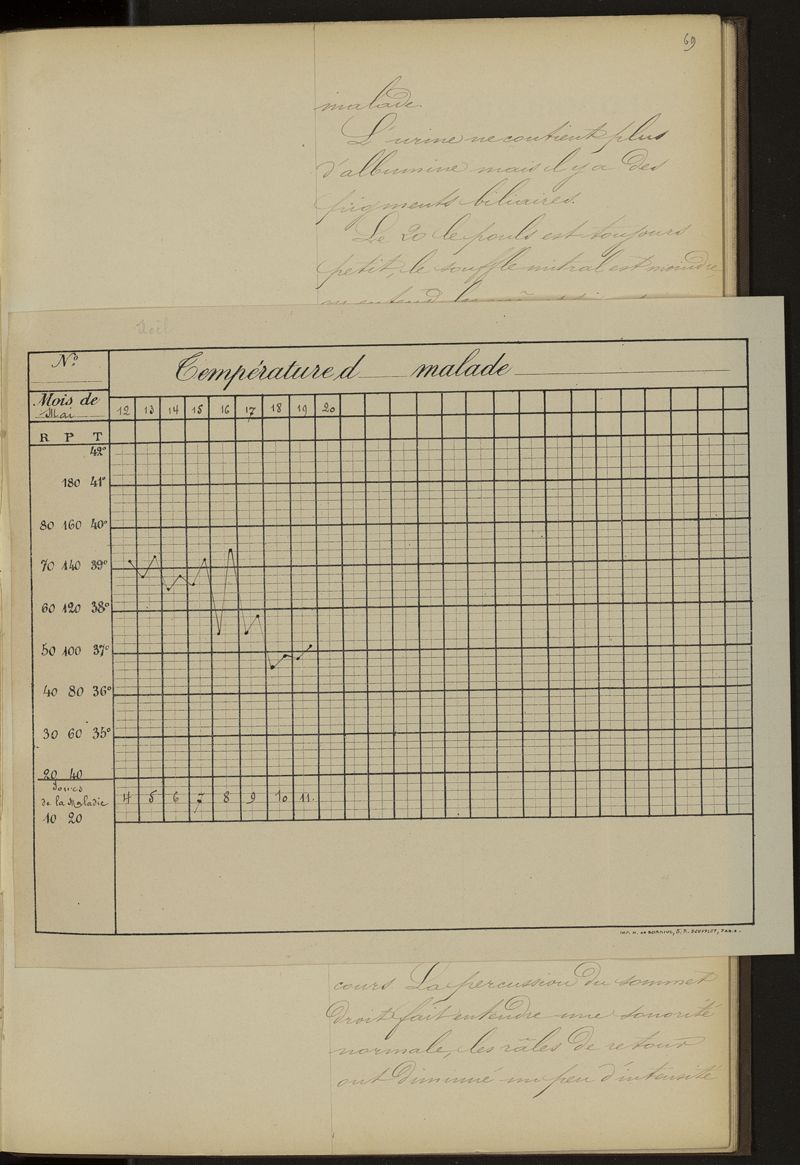 69
malade.
L'urine ne contient plus
d'albumine mais il y a des
pigments biliaires.
Le 20 le pouls est toujours
petit, le souffle mitral est moindre,
on entend
Noël
N.º Température d malade
Mois de
Mai 12 13 14 15 16 17 18 19 20
R P T
42º
180 41º
80 160 40º
70 140 39º
60 120 38º
50 100 37º
40 80 36º
30 60 35º
20 40
Jours
de la Maladie 4 5 6 7 8 9 10 11.
10 20
cours. La percussion du sommet
droit fait entendre une sonorité
normale, les râles de retour
ont diminué un peu d'intensité